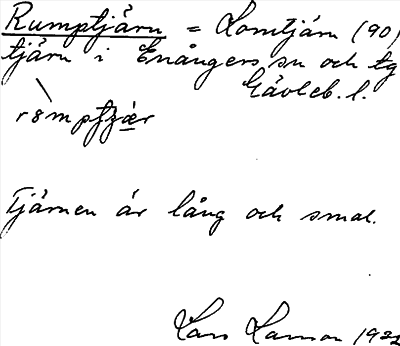 Rumptjärn = Lomtjärn (90)
tjärn i Enångers sn och tg
Gävleb. l.
Tjärnen är lång och smal.
Lars Larsson 192